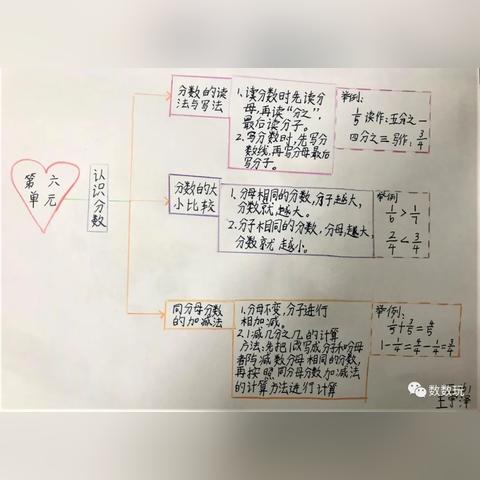 第六
单元
认识分数
分数的读
法与写法
1、读分数时先读分
母,再读“分之”,
最后读分子。
2.写分数时,先写分
数线,再写分母最后
写分子。
举例:
1/5 读作:五分之一
四分之三写作:3/4
分数的大
小比较
1.分母相同的分数,分子越大,
分数就越大。
2.分子相同的分数,分母越大
分数就越小。
举例
1/6>1/7
2/4<3/4
同分母分数
的加减法
1.分母不变,分子进行
相加减。
2.1减几分之几的计算
方法:先把1改写成分子和分母
都与减数分母相同的分数,
再按照同分母分数加减法
的计算方法进行计算
举例:
1-1/4=4/4-1/4=3/4
数数玩